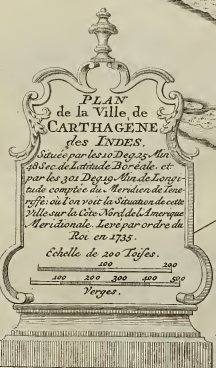 PLAN
de la Ville de
CARTHAGENE
des INDES.
Située par les 10 Deg. 25 Min
48 Sec. de Latitude Boréale. et
par les 301 Deg. 19 Min. de Longi-
tude comptée du Meridien de Tene-
riffe: où l'on voit la Situation de cette
Ville sur la Côte Nord de l'Amerique
Meridionale. Levé par ordre du
Roi en 1735.
Echelle de 200 Toises.
100 200
100 200 300 400 500
Verges.